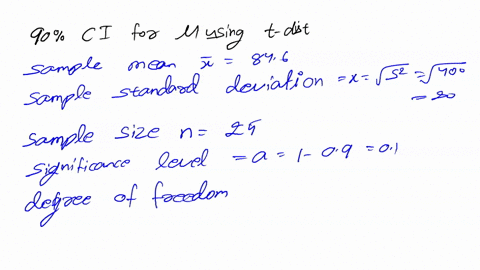 90% CI for M using t-dist
sample mean x̄ = 84.6
sample standard deviation = x = √S² = √400
= 20
sample size n = 25
significance level = a = 1 - 0.9 = 0.1
degree of freedom